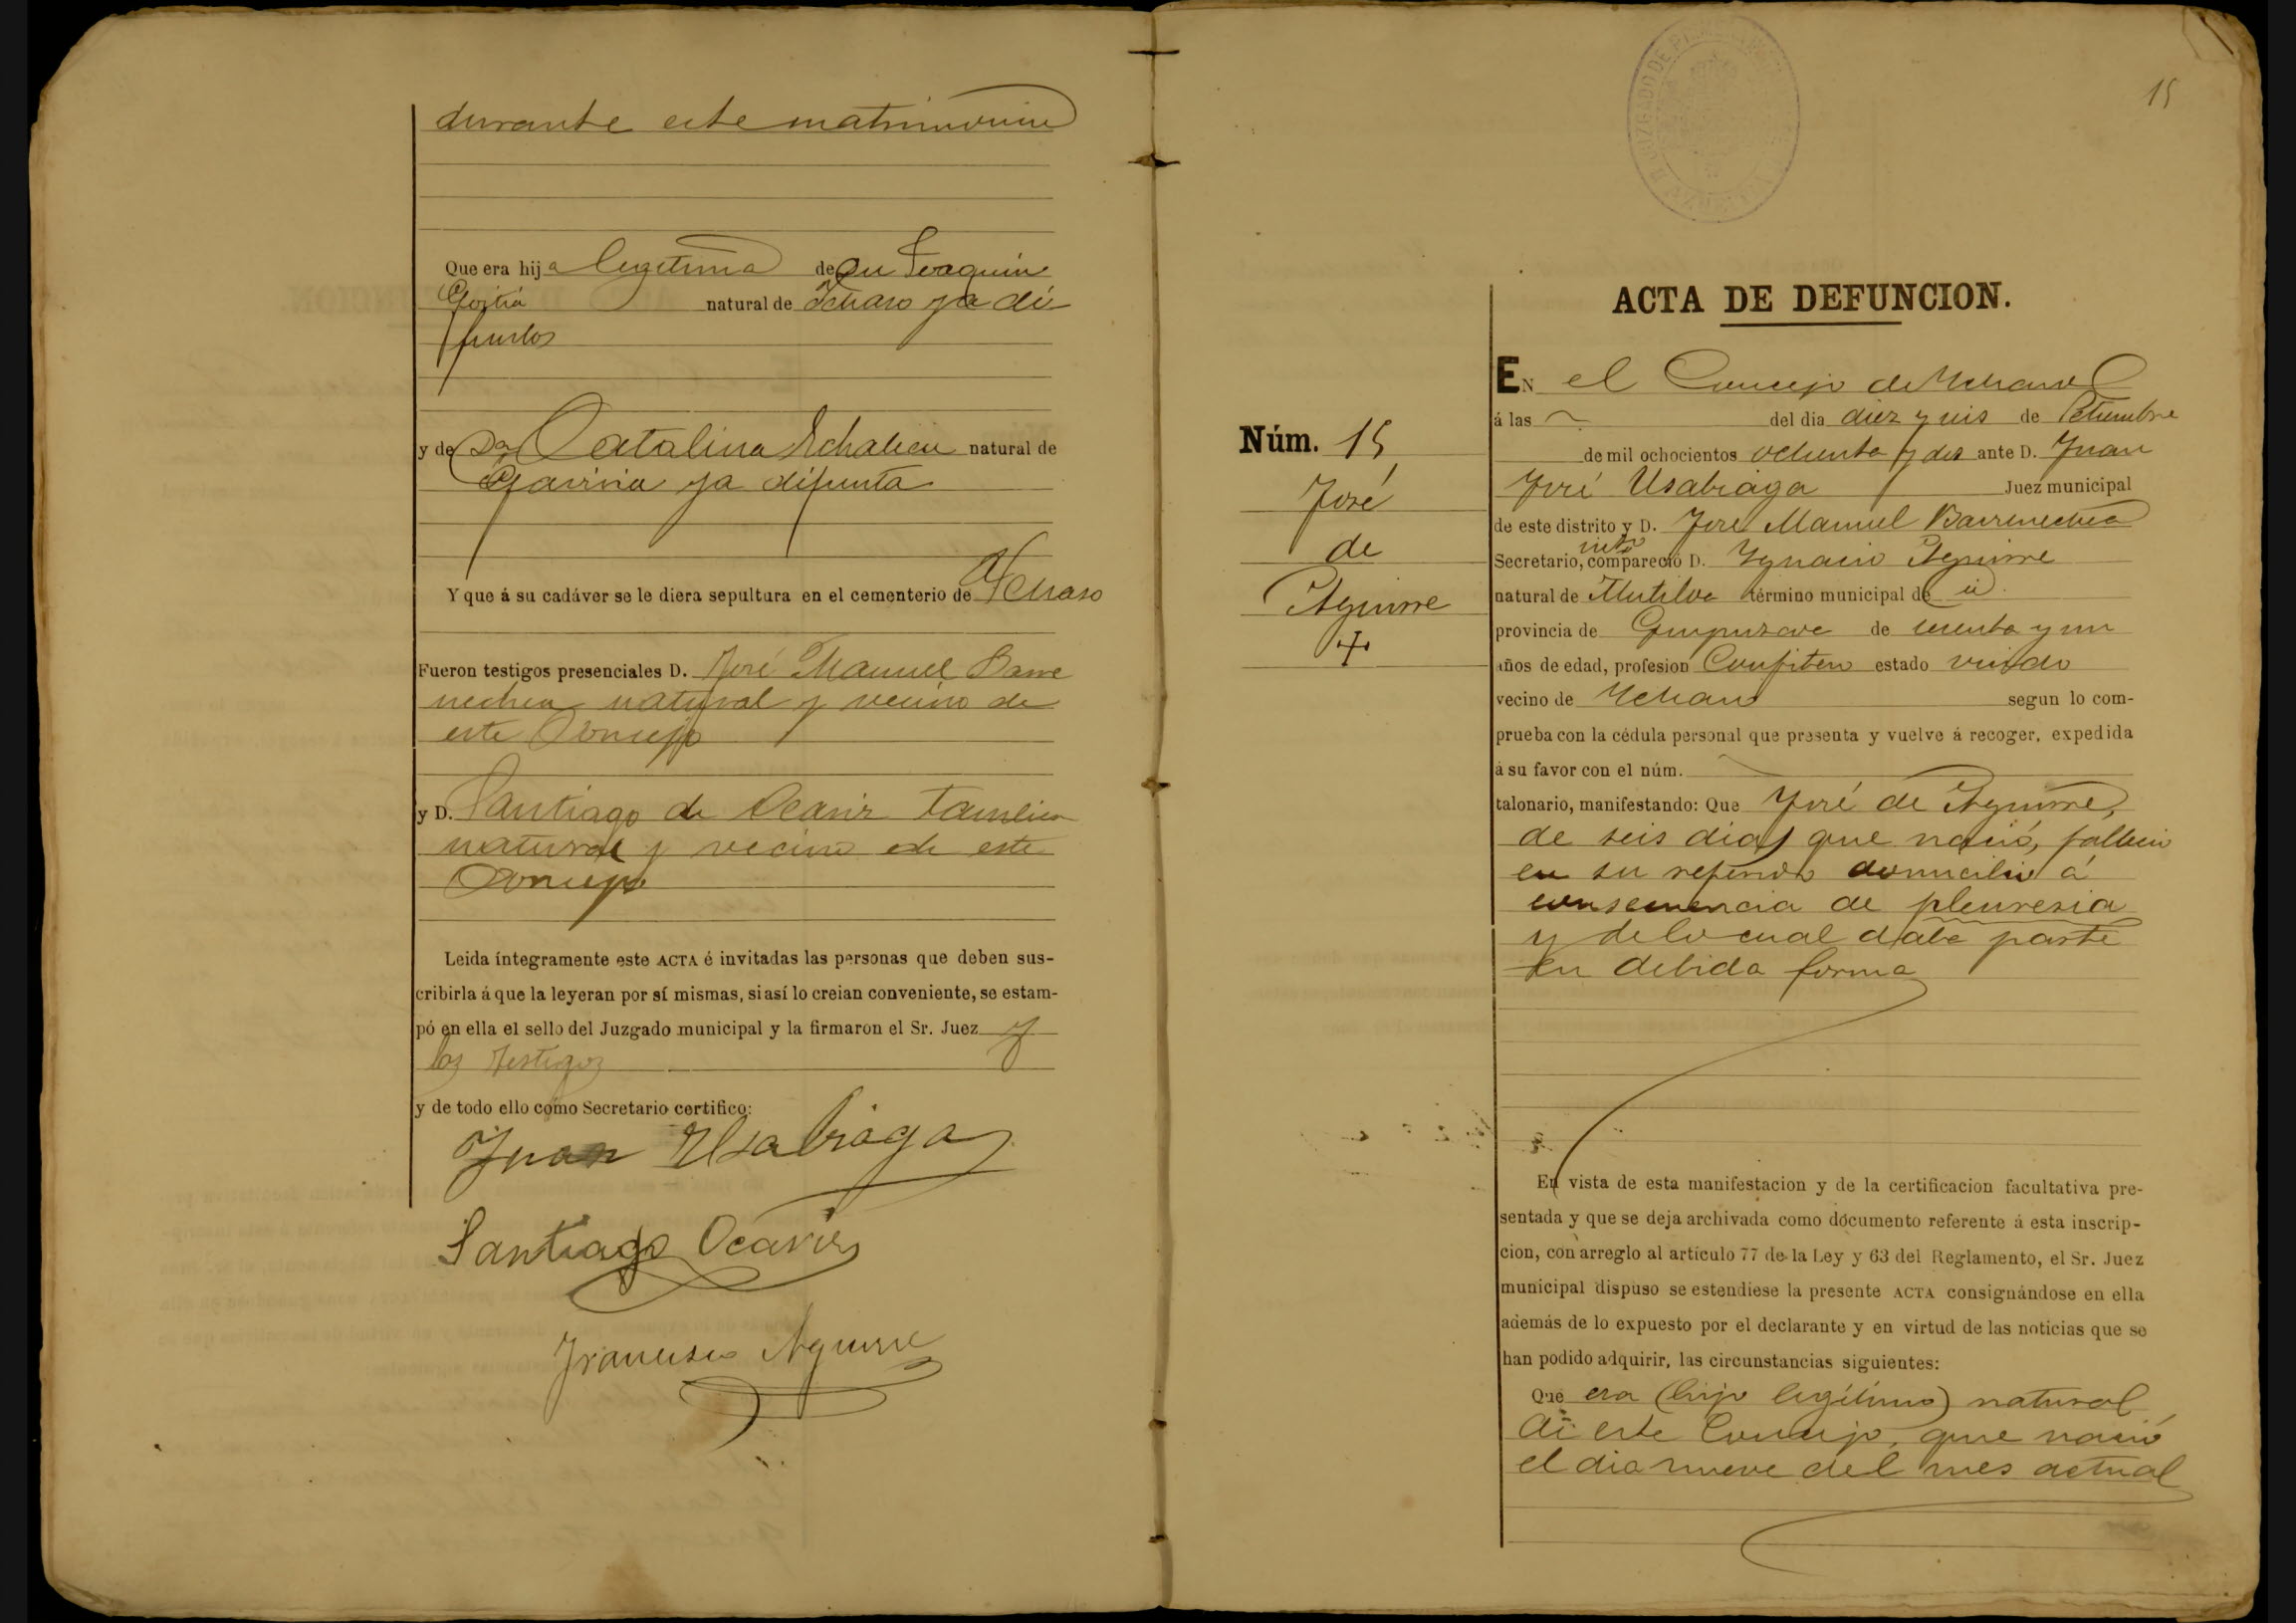 durante este matrimonio
Que era hija legitima de Dn Joaquin
Goitia natural de Ichaso ya di
funtos
y de Da Catalina Echaleeu natural de
Gaviria ya difunta
Y que á su cadáver se le diera sepultura en el cementerio de Ychaso
Fueron testigos presenciales D. José Manuel Barre
nechea natural y vecino de
este Concejo
y D. Santiago de Ocariz tambien
natural y vecino de este
Concejo
Leida íntegramente este ACTA é invitadas las personas que deben sus-
cribirla á que la leyeran por sí mismas, si así lo creian conveniente, se estam-
pó en ella el sello del Juzgado municipal y la firmaron el Sr. Juez y
los testigos
y de todo ello como Secretario certifico:
Juan Usabiaga
Santiago Ocariz
Francisco Aguirre
15
ACTA DE DEFUNCION.
EN el Concejo de Ychaso
á las del dia diez y seis de Setiembre
de mil ochocientos ochenta y dos ante D. Juan
José Usabiaga Juez municipal
de este distrito y D. José Manuel Barrenechea
Secretario, compareció D. Ygnacio Aguirre
natural de Mutiloa término municipal de id.
provincia de Guipuzcoa de cuenta y un
años de edad, profesion Confitero estado viudo
vecino de Ychaso segun lo com-
prueba con la cédula personal que presenta y vuelve á recoger, expedida
á su favor con el núm.
talonario, manifestando: Que José de Aguirre,
de seis dias que nació, falleció
en su referido domicilio á
consecuencia de pleuresia
y de lo cual daba parte
en debida forma
Núm. 15
José
de
Aguirre
+
En vista de esta manifestacion y de la certificacion facultativa pre-
sentada y que se deja archivada como documento referente á esta inscrip-
cion, con arreglo al artículo 77 de la Ley y 63 del Reglamento, el Sr. Juez
municipal dispuso se estendiese la presente ACTA consignándose en ella
además de lo expuesto por el declarante y en virtud de las noticias que se
han podido adquirir, las circunstancias siguientes:
Que era (hijo legítimo) natural
de este Concejo, que nació
el dia nueve del mes actual